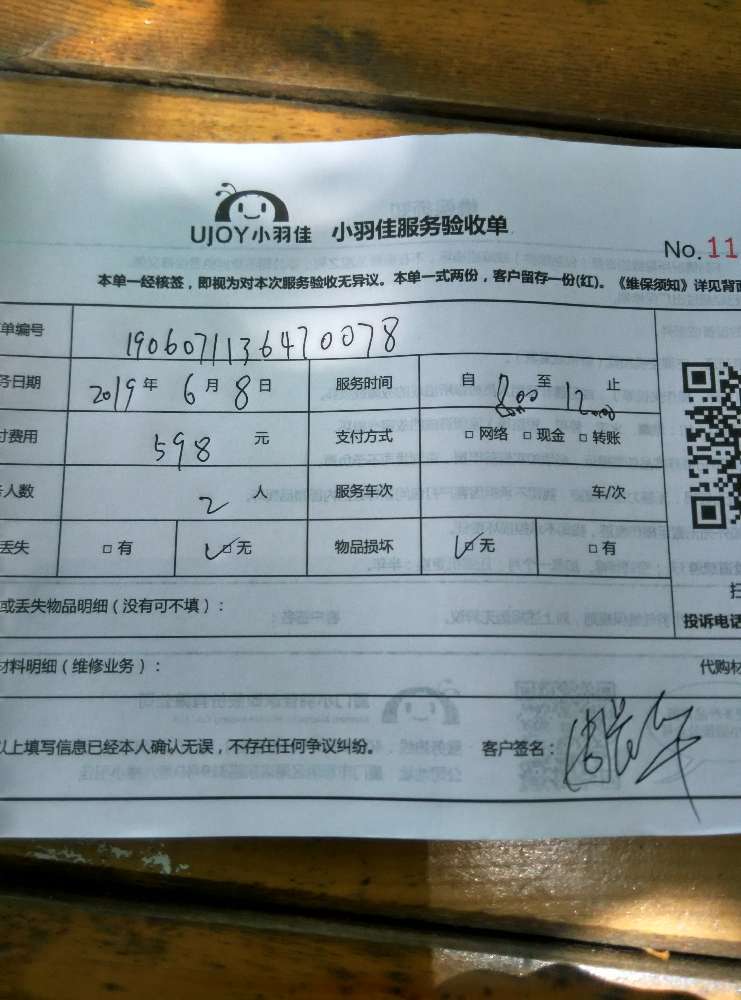 UJOY小羽佳 小羽佳服务验收单
No.11
本单一经核签，即视为对本次服务验收无异议。本单一式两份，客户留存一份(红)。《维保须知》详见背面
单编号 1906071136470078
务日期 2019年 6月 8日 服务时间 自 8:00 至 12:00 止
付费用 598 元 支付方式 □网络 □现金 □转账
人数 2 人 服务车次 车/次
丢失 □有 ☑无 物品损坏 ☑无 □有
或丢失物品明细（没有可不填）：
投诉电话
材料明细（维修业务）： 代购材
以上填写信息已经本人确认无误，不存在任何争议纠纷。 客户签名：